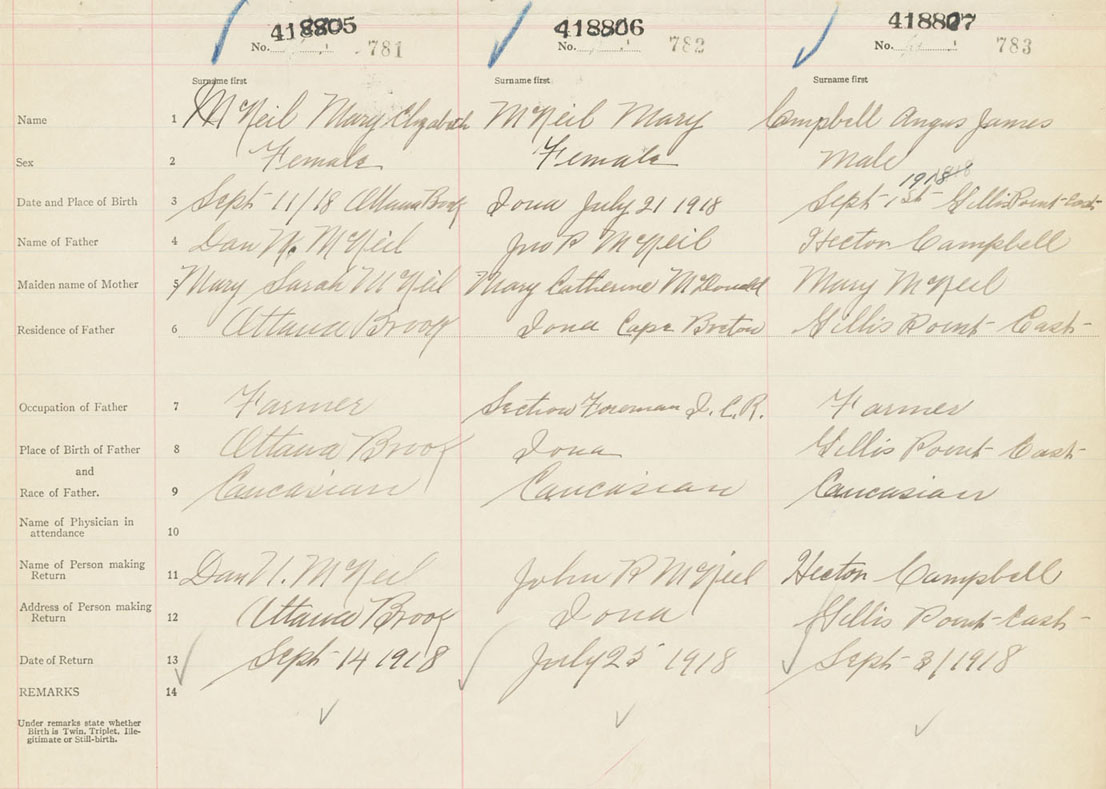 418805 418806 418807
No. 781 No. 782 No. 783
Surname first Surname first Surname first
Name 1 McNeil Mary Elizabeth McNeil Mary Campbell Angus James
Sex 2 Female Female Male
Date and Place of Birth 3 Sept 11/18 Ottawa Brook Iona July 21 1918 Sept 1st 1918 Gillis Point East
Name of Father 4 Dan N. McNeil Jno P McNeil Hector Campbell
Maiden name of Mother 5 Mary Sarah McNeil Mary Catherine McDonald Mary McNeil
Residence of Father 6 Ottawa Brook Iona Cape Breton Gillis Point East
Occupation of Father 7 Farmer Section Foreman I.C.R. Farmer
Place of Birth of Father 8 Ottawa Brook Iona Gillis Point East
and
Race of Father. 9 Caucasian Caucasian Caucasian
Name of Physician in
attendance 10
Name of Person making
Return 11 Dan N. McNeil John P McNeil Hector Campbell
Address of Person making
Return 12 Ottawa Brook Iona Gillis Point East
Date of Return 13 Sept 14 1918 July 25 1918 Sept 3/1918
REMARKS 14
Under remarks state whether
Birth is Twin, Triplet, Ille-
gitimate or Still-birth.